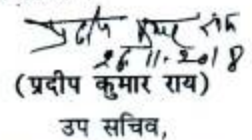 प्रदीप कुमार राय
26.11.2018
(प्रदीप कुमार राय)
उप सचिव,